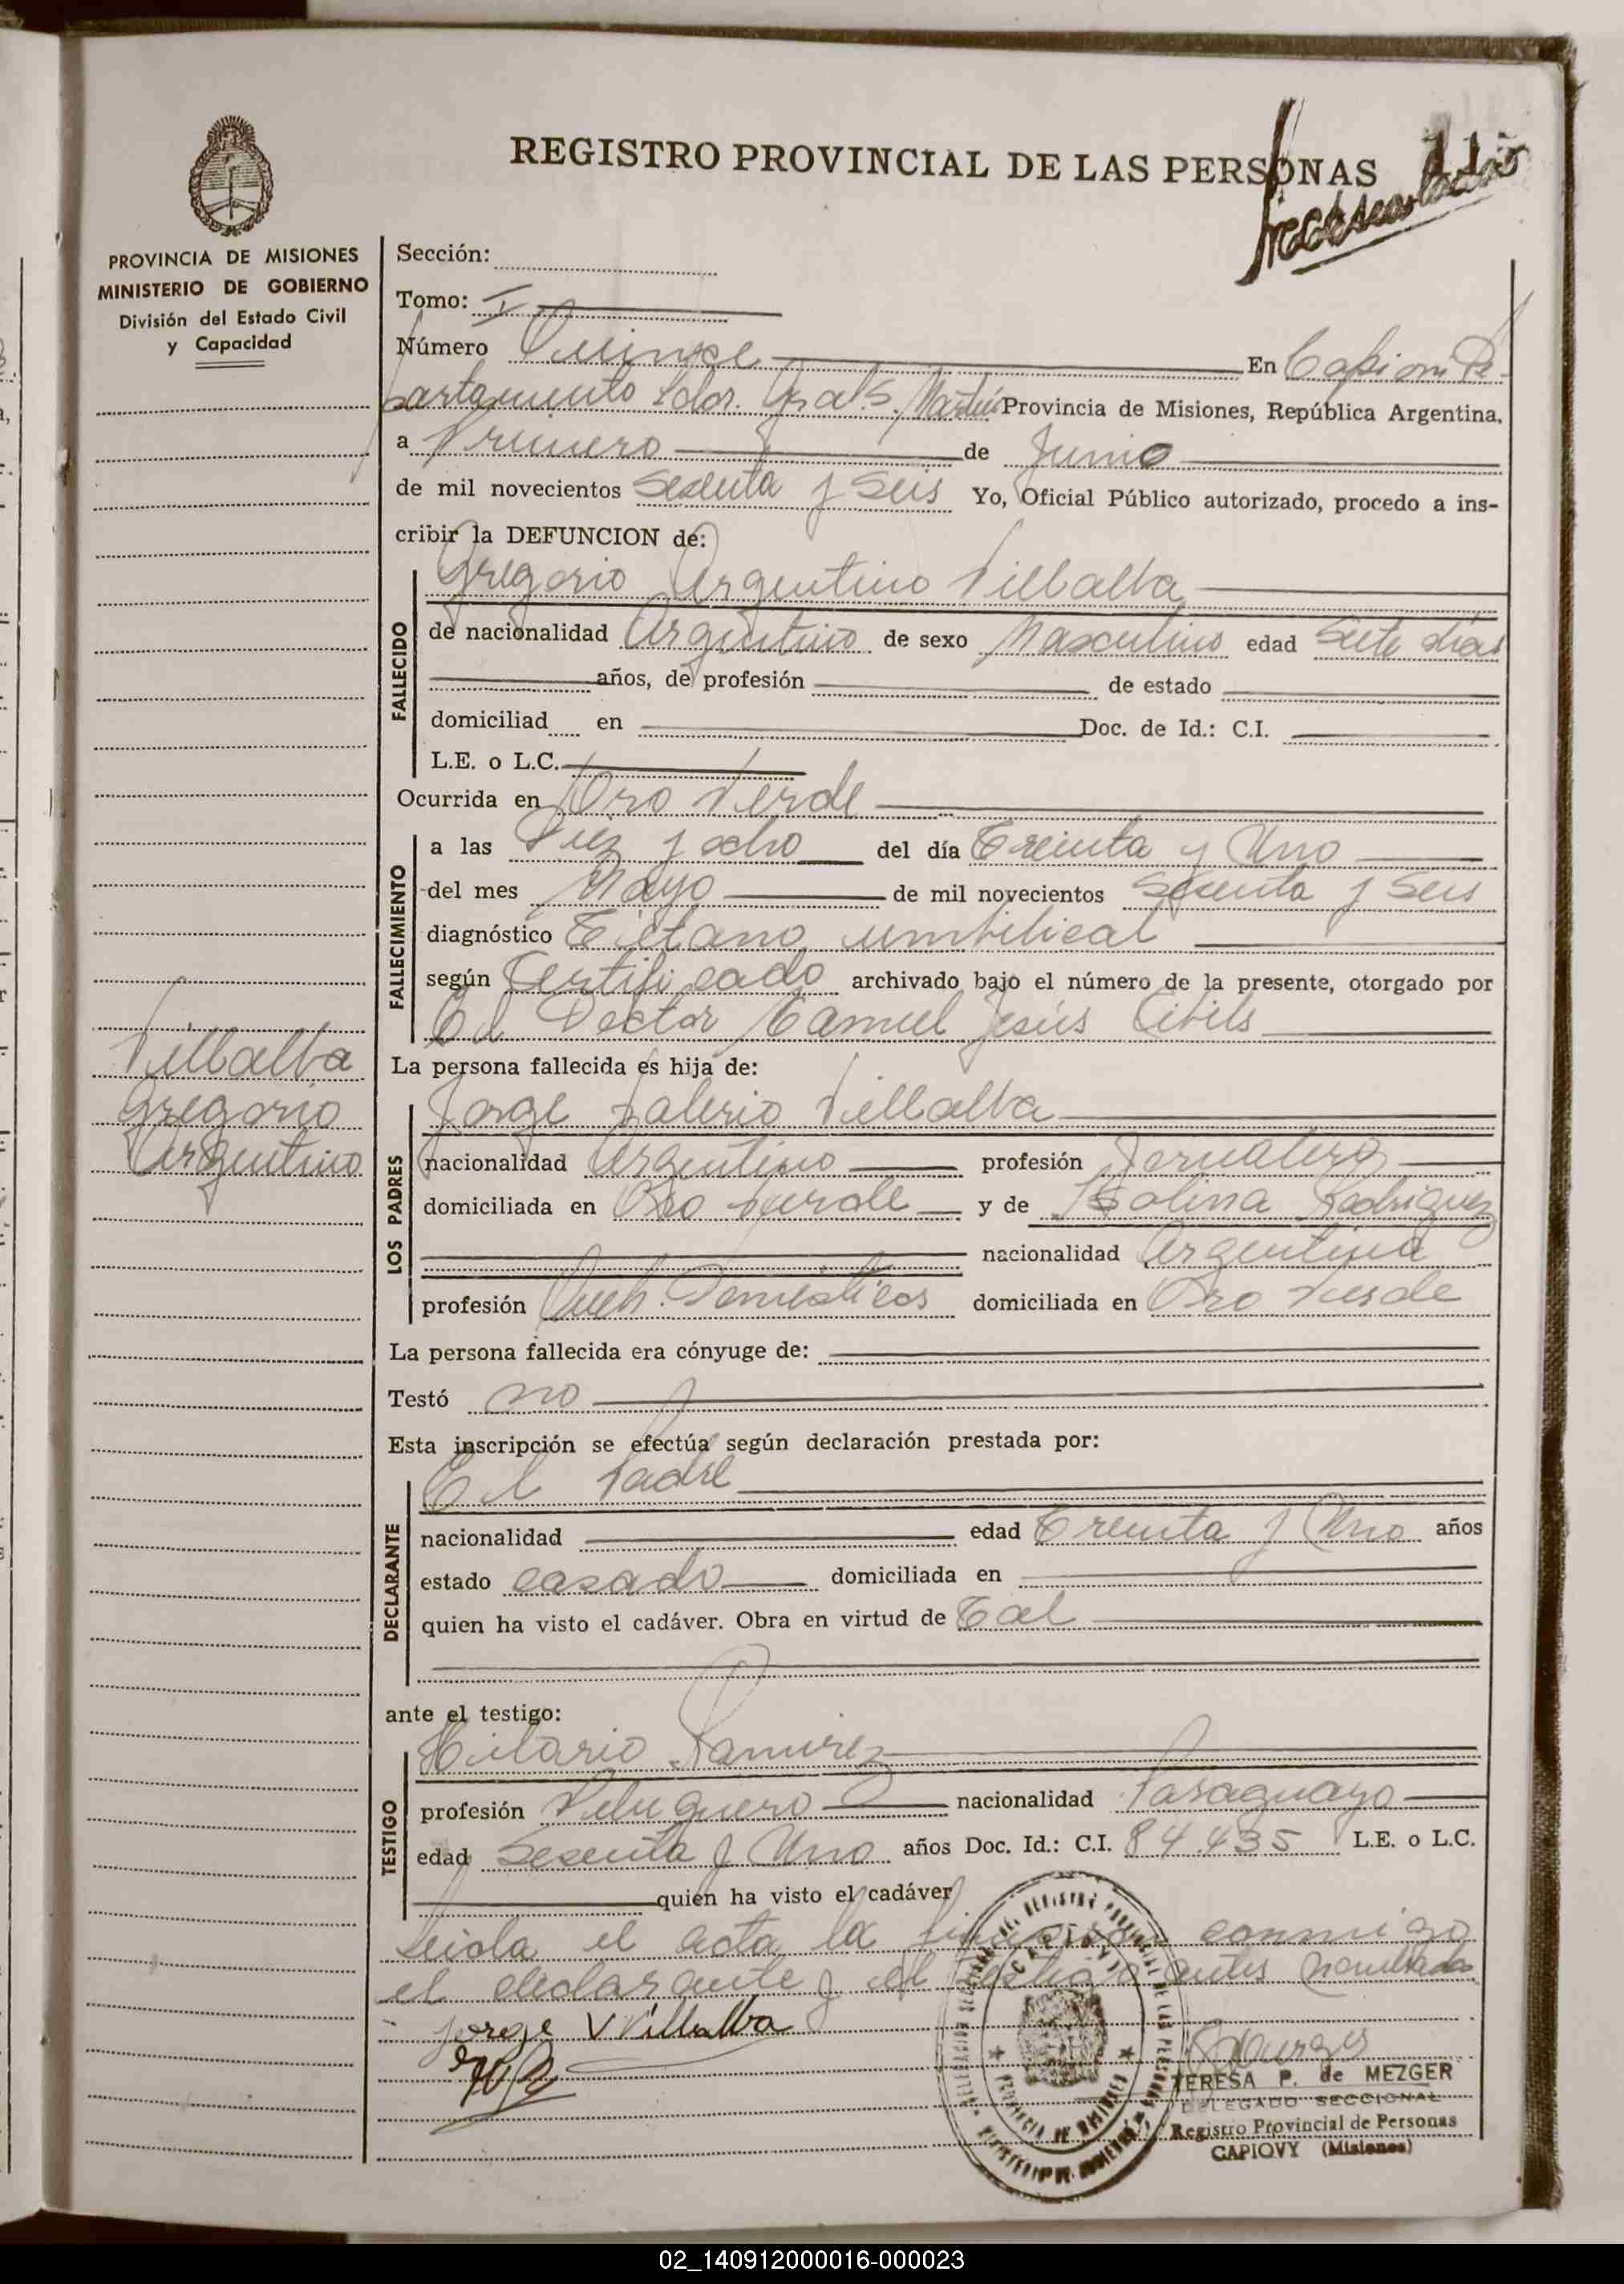 REGISTRO PROVINCIAL DE LAS PERSONAS
PROVINCIA DE MISIONES
MINISTERIO DE GOBIERNO
División del Estado Civil
y Capacidad
Sección:
Tomo: I
Número Quince En Capiovi De-
partamento Ldor. Gral. S. Martín Provincia de Misiones, República Argentina,
a Primero de Junio
de mil novecientos Sesenta y Seis Yo, Oficial Público autorizado, procedo a ins-
cribir la DEFUNCION de:
FALLECIDO
Gregorio Argentino Villalba
de nacionalidad Argentino de sexo Masculino edad Siete días
años, de profesión de estado
domiciliad en Doc. de Id.: C.I.
L.E. o L.C.
Ocurrida en Oro Verde
FALLECIMIENTO
a las Diez y ocho del día Treinta y Uno
del mes Mayo de mil novecientos Sesenta y Seis
diagnóstico Tétano umbilical
según Certificado archivado bajo el número de la presente, otorgado por
El Doctor Manuel Jesús Cibils
Villalba
Gregorio
Argentino
La persona fallecida es hija de:
LOS PADRES
Jorge Valerio Villalba
nacionalidad Argentino profesión Jornalero
domiciliada en Oro Verde y de Isolina Rodriguez
nacionalidad Argentina
profesión Queh. Domésticos domiciliada en Oro Verde
La persona fallecida era cónyuge de:
Testó no
Esta inscripción se efectúa según declaración prestada por:
DECLARANTE
El Padre
nacionalidad edad Treinta y Uno años
estado casado domiciliada en
quien ha visto el cadáver. Obra en virtud de Tal
ante el testigo:
TESTIGO
Hilario Ramirez
profesión Peluquero nacionalidad Paraguayo
edad Sesenta y Uno años Doc. Id.: C.I. 84.435 L.E. o L.C.
quien ha visto el cadáver
Leida el acta la firmaron conmigo
el declarante y el testigo antes nombrado
Jorge V Villalba
TERESA P. de MEZGER
DELEGADO SECCIONAL
Registro Provincial de Personas
CAPIOVY (Misiones)
02_140912000016-000023